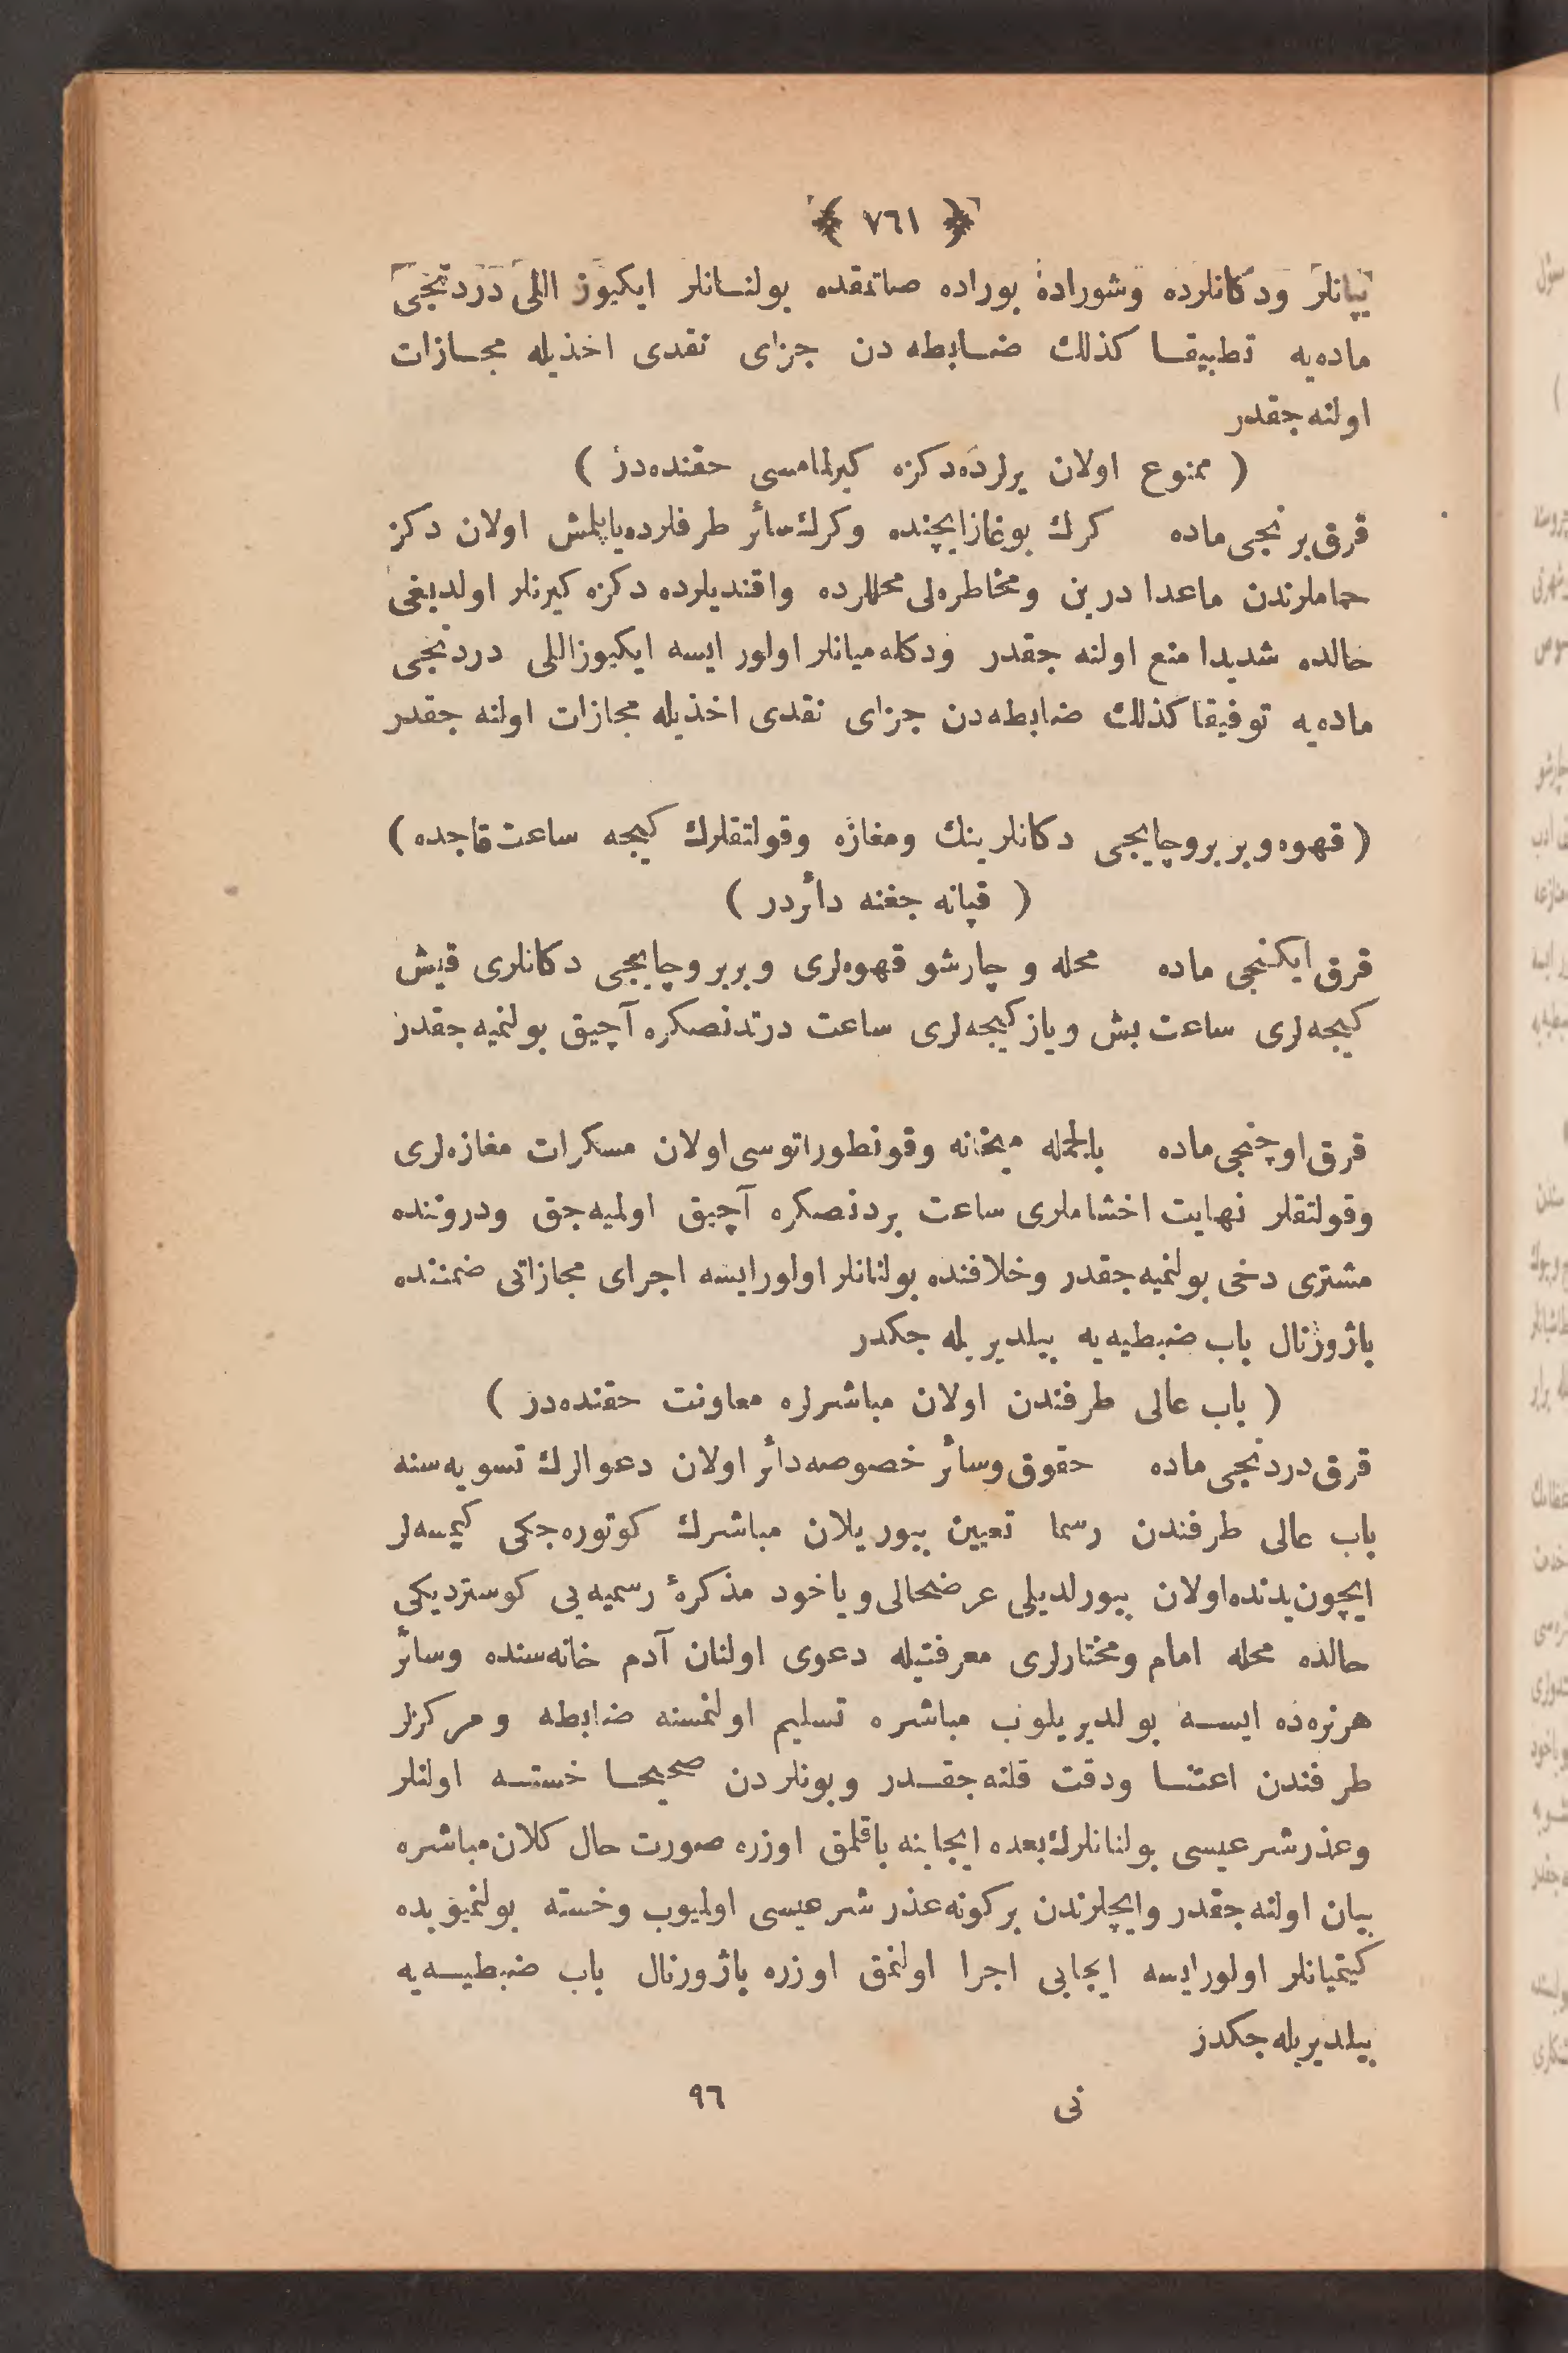 ﴿ ٧٦١ ﴾
یپانلر ودكانلرده وشوراده بوراده صاتمقده بولنسانلر ایكیوز اللی دردنجی
ماده‌یه تطبیقا كذلك ضابطه دن جزای نقدی اخذیله مجازات
اولنه جقدر
( ممنوع اولان یرلرده دكزه كیرلمامسی حقنده‌در )
قرق برنجی ماده كرك بوغاز ایچنده وكرك سائر طرفلرده یاپلمش اولان دكز
حماملرندن ماعدا درین ومخاطره‌لی محللرده واقندیلرده دكزه كیرنلر اولدیغی
حالده شدیدا منع اولنه جقدر ودكله‌میانلر اولور ایسه ایكیوزاللی دردنجی
ماده‌یه توفیقا كذلك ضابطه‌دن جزای نقدی اخذیله مجازات اولنه جقدر
( قهوه وبربر وچایجی دكانلرینك ومغازه وقولتقلرك كیجه ساعت قاجده )
( قپانه جغنه دائردر )
قرق ایكنجی ماده محله و چارشو قهوه‌لری وبربر وچایجی دكانلری قیش
كیجه‌لری ساعت بش ویاز كیجه‌لری ساعت درتدنصكره آچیق بولنمیه جقدر
قرق اوچنجی ماده بالجمله میخانه وقونطوراتوسی اولان مسكرات مغازه‌لری
وقولتقلر نهایت اخشاملری ساعت بردنصكره آچیق اولمیه جق ودروننده
مشتری دخی بولنمیه جقدر وخلافنده بولنانلر اولورایسه اجرای مجازاتی ضمننده
باژورنال باب ضبطیه‌یه بیلدیریله جكدر
( باب عالی طرفندن اولان مباشرلره معاونت حقنده‌در )
قرق دردنجی ماده حقوق وسائر خصوصه دائر اولان دعوالرك تسویه‌سنه
باب عالی طرفندن رسما تعیین بیوریلان مباشرك كوتوره جكی كیمسه‌لر
ایچون یدنده اولان بیورلدیلی عرضحالی ویاخود مذكرۀ رسمیه‌یی كوستردیكی
حالده محله امام ومختارلری معرفتیله دعوی اولنان آدم خانه‌سنده وسائر
هرنره‌ده ایسه بولدیریلوب مباشره تسلیم اولنمسنه ضابطه ومركزلر
طرفندن اعتنا ودقت قلنه جقدر وبونلردن صحیحا خسته اولنلر
وعذرشرعیسی بولنانلرك بعده ایجابنه باقلمق اوزره صورت حال كلان مباشره
بیان اولنه جقدر وایچلرندن بركونه عذر شرعیسی اولمیوب وخسته بولنمیوبده
كیتمیانلر اولورایسه ایجابی اجرا اولنمق اوزره باژورنال باب ضبطیه‌یه
بیلدیریله جكدر
نی ٩٦